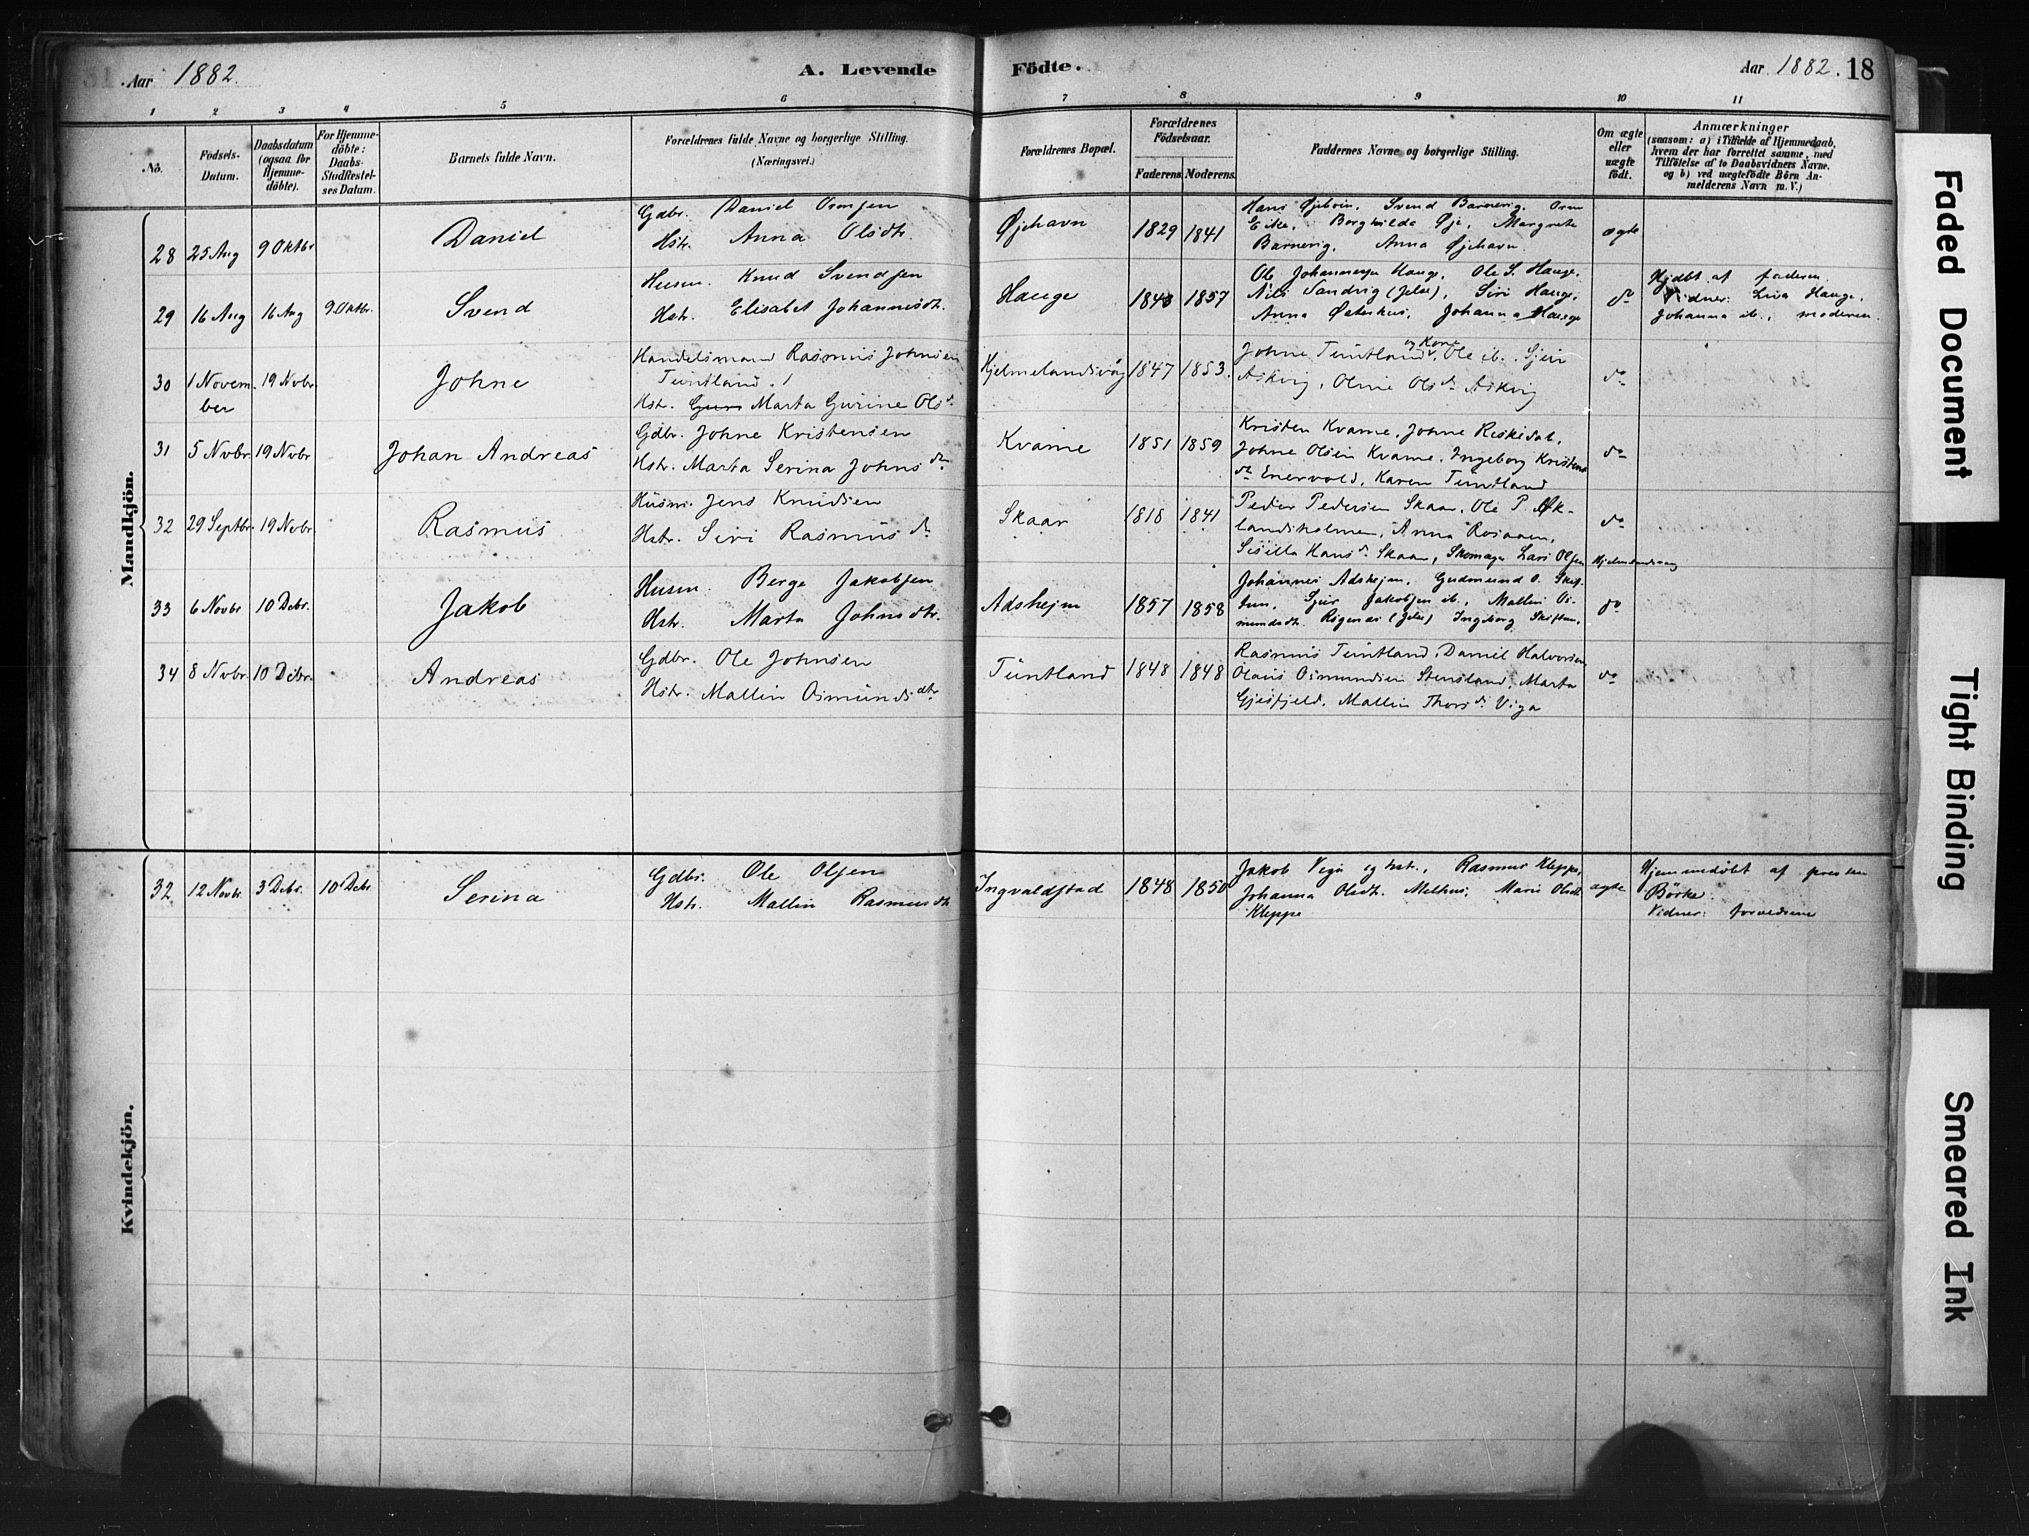 Aar 1882.
A. Levende Födte.
Aar 1882. 18
1 2 3 4 5 6 7 8 9 10 11
No.
Födsels-Datum.
Daabsdatum (ogsaa for Hjemme-döbte).
For Hjemme-döbte: Daabs-Stadfæstel-ses Datum.
Barnets fulde Navn.
Forældrenes fulde Navne og borgerlige Stilling.
(Næringsvei.)
Forældrenes Bopæl.
Forældrenes Födselsaar.
Faderens. Moderens.
Faddernes Navne og borgerlige Stilling.
Om ægte eller uægte födt.
Anmærkninger
(saasom: a) i Tilfælde af Hjemmedaab,
hvem der har forrettet samme, med
Tilföielse af to Daabsvidners Navne.
og b) ved uægtefödte Börn An-
melderens Navn m. V.)
Mandkjön.
28 25 Aug 9 Oktbr Daniel
Gdbr. Daniel Ormsen
Hstr. Anna Olsdtr.
Øjehavn 1829 1841
Hans Svend Barnevig, Orm
Eike, Borghilda Øje, Margrete
Barnevig, Anna Øjehavn.
ægte
29 16 Aug 16 Aug 9 Oktbr. Svend
Husm. Knud Svendsen
Hstr. Elisabet Johannesdtr.
Hauge 1848 1857
Ole Johannesen Hauge, Ole S. Hauge,
Nils Sandvig (Jelse), Siri Hauge,
Anna Johanna Hauge
do
Hjdbt af faderen.
Vidner: Hauge,
Johanna ib., moderen.
30 1 Novem-
ber 19 Nvbr. Johne
Handelsmand Rasmus Johnsen
Tuntland.
Hstr. Marta Gurine Olsdr
Hjelmelandsvåg 1847 1853.
Johne Tuntland og Kone, Ole ib., Sjur
Askvig, Oline Olsdr Askvig
do
31 5 Nvbr. 19 Nvbr Johan Andreas
Gdbr. Johne Kristensen
Hstr. Marta Serina Johnsdr
Kvame 1851 1859
Kristen Kvame, Johne Riskedal,
Johne Olsen Kvame, Ingeborg Kristens
dr Enervold, Karen Tuntland
do
32 29 Septbr. 19 Nvbr. Rasmus
Husm. Jens Knudsen
Hstr. Siri Rasmusdr
Skaar 1818 1841
Peder Pedersen Skaar, Ole P.
landsholmen, Anna
Sisilla Hansdr Skaar, Skomager Lars Olsen Hjelmelandsvaag
do
33 6 Novbr 10 Debr. Jakob
Husm. Berge Jakobsen
Hstr. Marta Johnsdtr.
Adshejm 1857 1858
Johannes Adshejm, Gudmund O. Skif-
tun, Sjur Jakobsen ib., Mallin Os-
mundsdtr. (Jelse) Ingeborg Skiftun.
do
34 8 Nvbr. 10 Debr. Andreas
Gdbr. Ole Johnsen
Hstr. Mallin Osmundsdtr
Tuntland 1848 1848
Rasmus Tuntland, Daniel Halvorsen,
Olaus Osmundsen Stensland, Marta
Gjesfjeld, Mallin Thorsdr Viga
do
Kvindekjön.
32 12 Novbr. 3 Debr. 10 Debr Serina
Gdbr. Ole Olsen
Hstr. Mallin Rasmusdtr
Ingvaldstad 1848 1850
Jakob Viga og hst., Rasmus Kleppe,
Johanna Olsdtr. Melhus, Marie Olsdtr.
Kleppe
ægte
Hjemmedöbt af presten
Börke.
Vidner: forældrene
Faded Document
Tight Binding
Smeared Ink